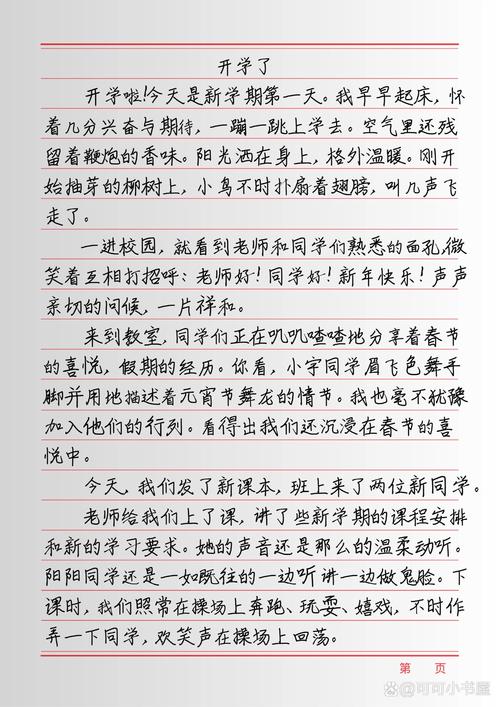 开学了
开学啦!今天是新学期第一天。我早早起床，怀
着几分兴奋与期待，一蹦一跳上学去。空气里还残
留着鞭炮的香味。阳光洒在身上，格外温暖。刚开
始抽芽的柳树上，小鸟不时扑扇着翅膀，叫几声飞
走了。
一进校园，就看到老师和同学们熟悉的面孔,微
笑着互相打招呼：老师好！同学好！新年快乐！声声
亲切的问候，一片祥和。
来到教室，同学们正在叽叽喳喳地分享着春节
的喜悦，假期的经历。你看，小宇同学眉飞色舞手
脚并用地描述着元宵节舞龙的情节。我也毫不犹豫
加入他们的行列。看得出我们还沉浸在春节的喜
悦中。
今天，我们发了新课本，班上来了两位新同学。
老师给我们上了课，讲了些新学期的课程安排
和新的学习要求。她的声音还是那么的温柔动听。
阳阳同学还是一如既往的一边听讲一边做鬼脸。下
课时，我们照常在操场上奔跑、玩耍、嬉戏，不时作
弄一下同学，欢笑声在操场上回荡。
第 页
@可可小书屋